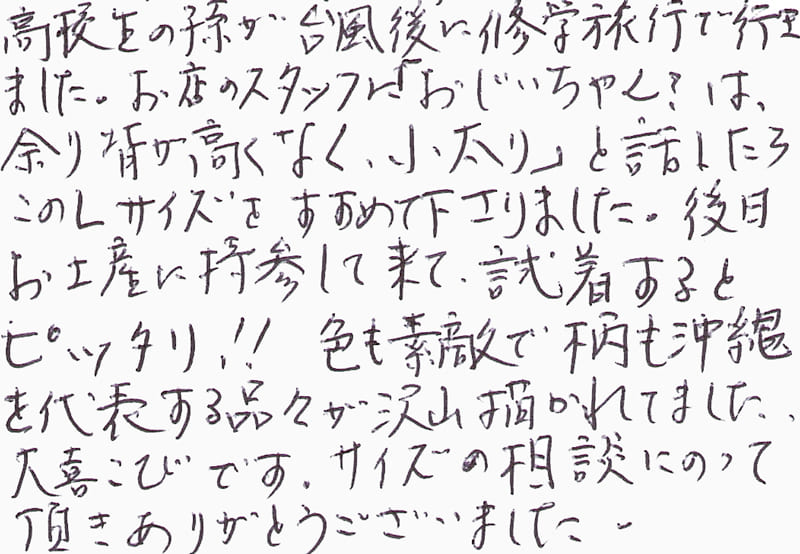 高校生の孫が台風後に修学旅行で行き
ました。お店のスタッフに「おじいちゃん?は、
余り背が高くなく、小太り」と話したら
このLサイズをすすめて下さりました。後日
お土産に持参して来て、試着すると
ピッタリ!! 色も素敵で柄も沖縄
を代表する品々が沢山描かれてました、
大喜こびです。サイズの相談にのって
頂きありがとうございました。